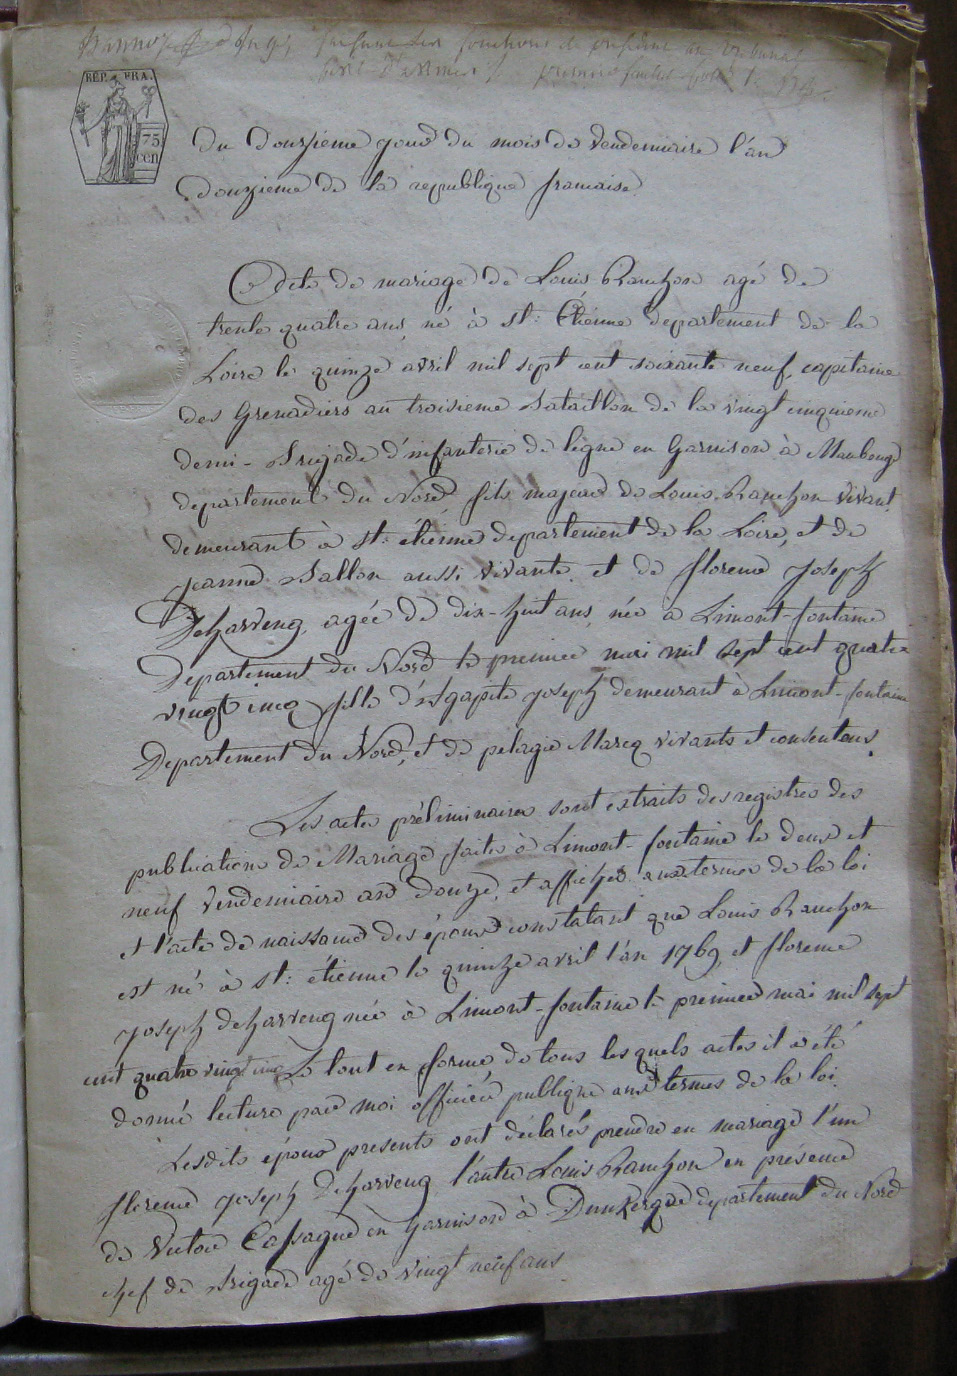 faisant les fonctions de président du tribunal
premier feuillet
REP. FRA.
75
cen
Du Douzieme jour du mois de Vendemiaire l'an
Douzieme de la republique francaise
Acte de mariage de Louis Ranchon agé de
trente quatre ans né à St: Étiénne departement de la
Loire le quinze avril mil sept cent soixante neuf, capitaine
des Grenadiers au troisieme Bataillon de la vingt cinquieme
demi-Brigade d'infanterie de ligne en Garnison à Maubeuge
departement du Nord fils majeur de Louis Ranchon vivant
demeurant à St: étienne departement de la Loire, et de
jeanne Ballon aussi vivante, et de florence Joseph
Deharveng, agée de dix-huit ans, née à Limont-fontaine
Departement du Nord le premier mai mil sept cent quatre
vingt cinq fille d'Agapite joseph demeurant à Limont-fontaine
Departement du Nord, et de pélagie Marcq vivants et consentans.
Les actes préliminaires sont extraits des registres des
publication de Mariage faite à Limont-fontaine le deux et
neuf Vendemiaire an Douze, et affichés aux termes de la loi
et l'acte de naissance des époux constatant que Louis Ranchon
est né à St: étienne le quinze avril l'an 1769, et florence
joseph deharveng née à Limont-fontaine le premier mai mil sept
cent quatre vingt cinq Le tout en forme, de tous lesquels actes il a été
donné lecture par moi officier publique aux termes de la loi.
Lesdits époux presents ont déclarés prendre en mariage l'un
florence joseph Deharveng, l'autre Louis Ranchon en présence
de Victor Cassagne en garnison à Dunkerque departement du Nord
chef de Brigade agé de vingt neuf ans